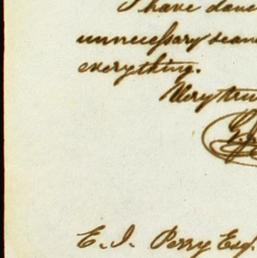 I have done
unnecessary
everything.
Very tru
E. J. Perry Esq.